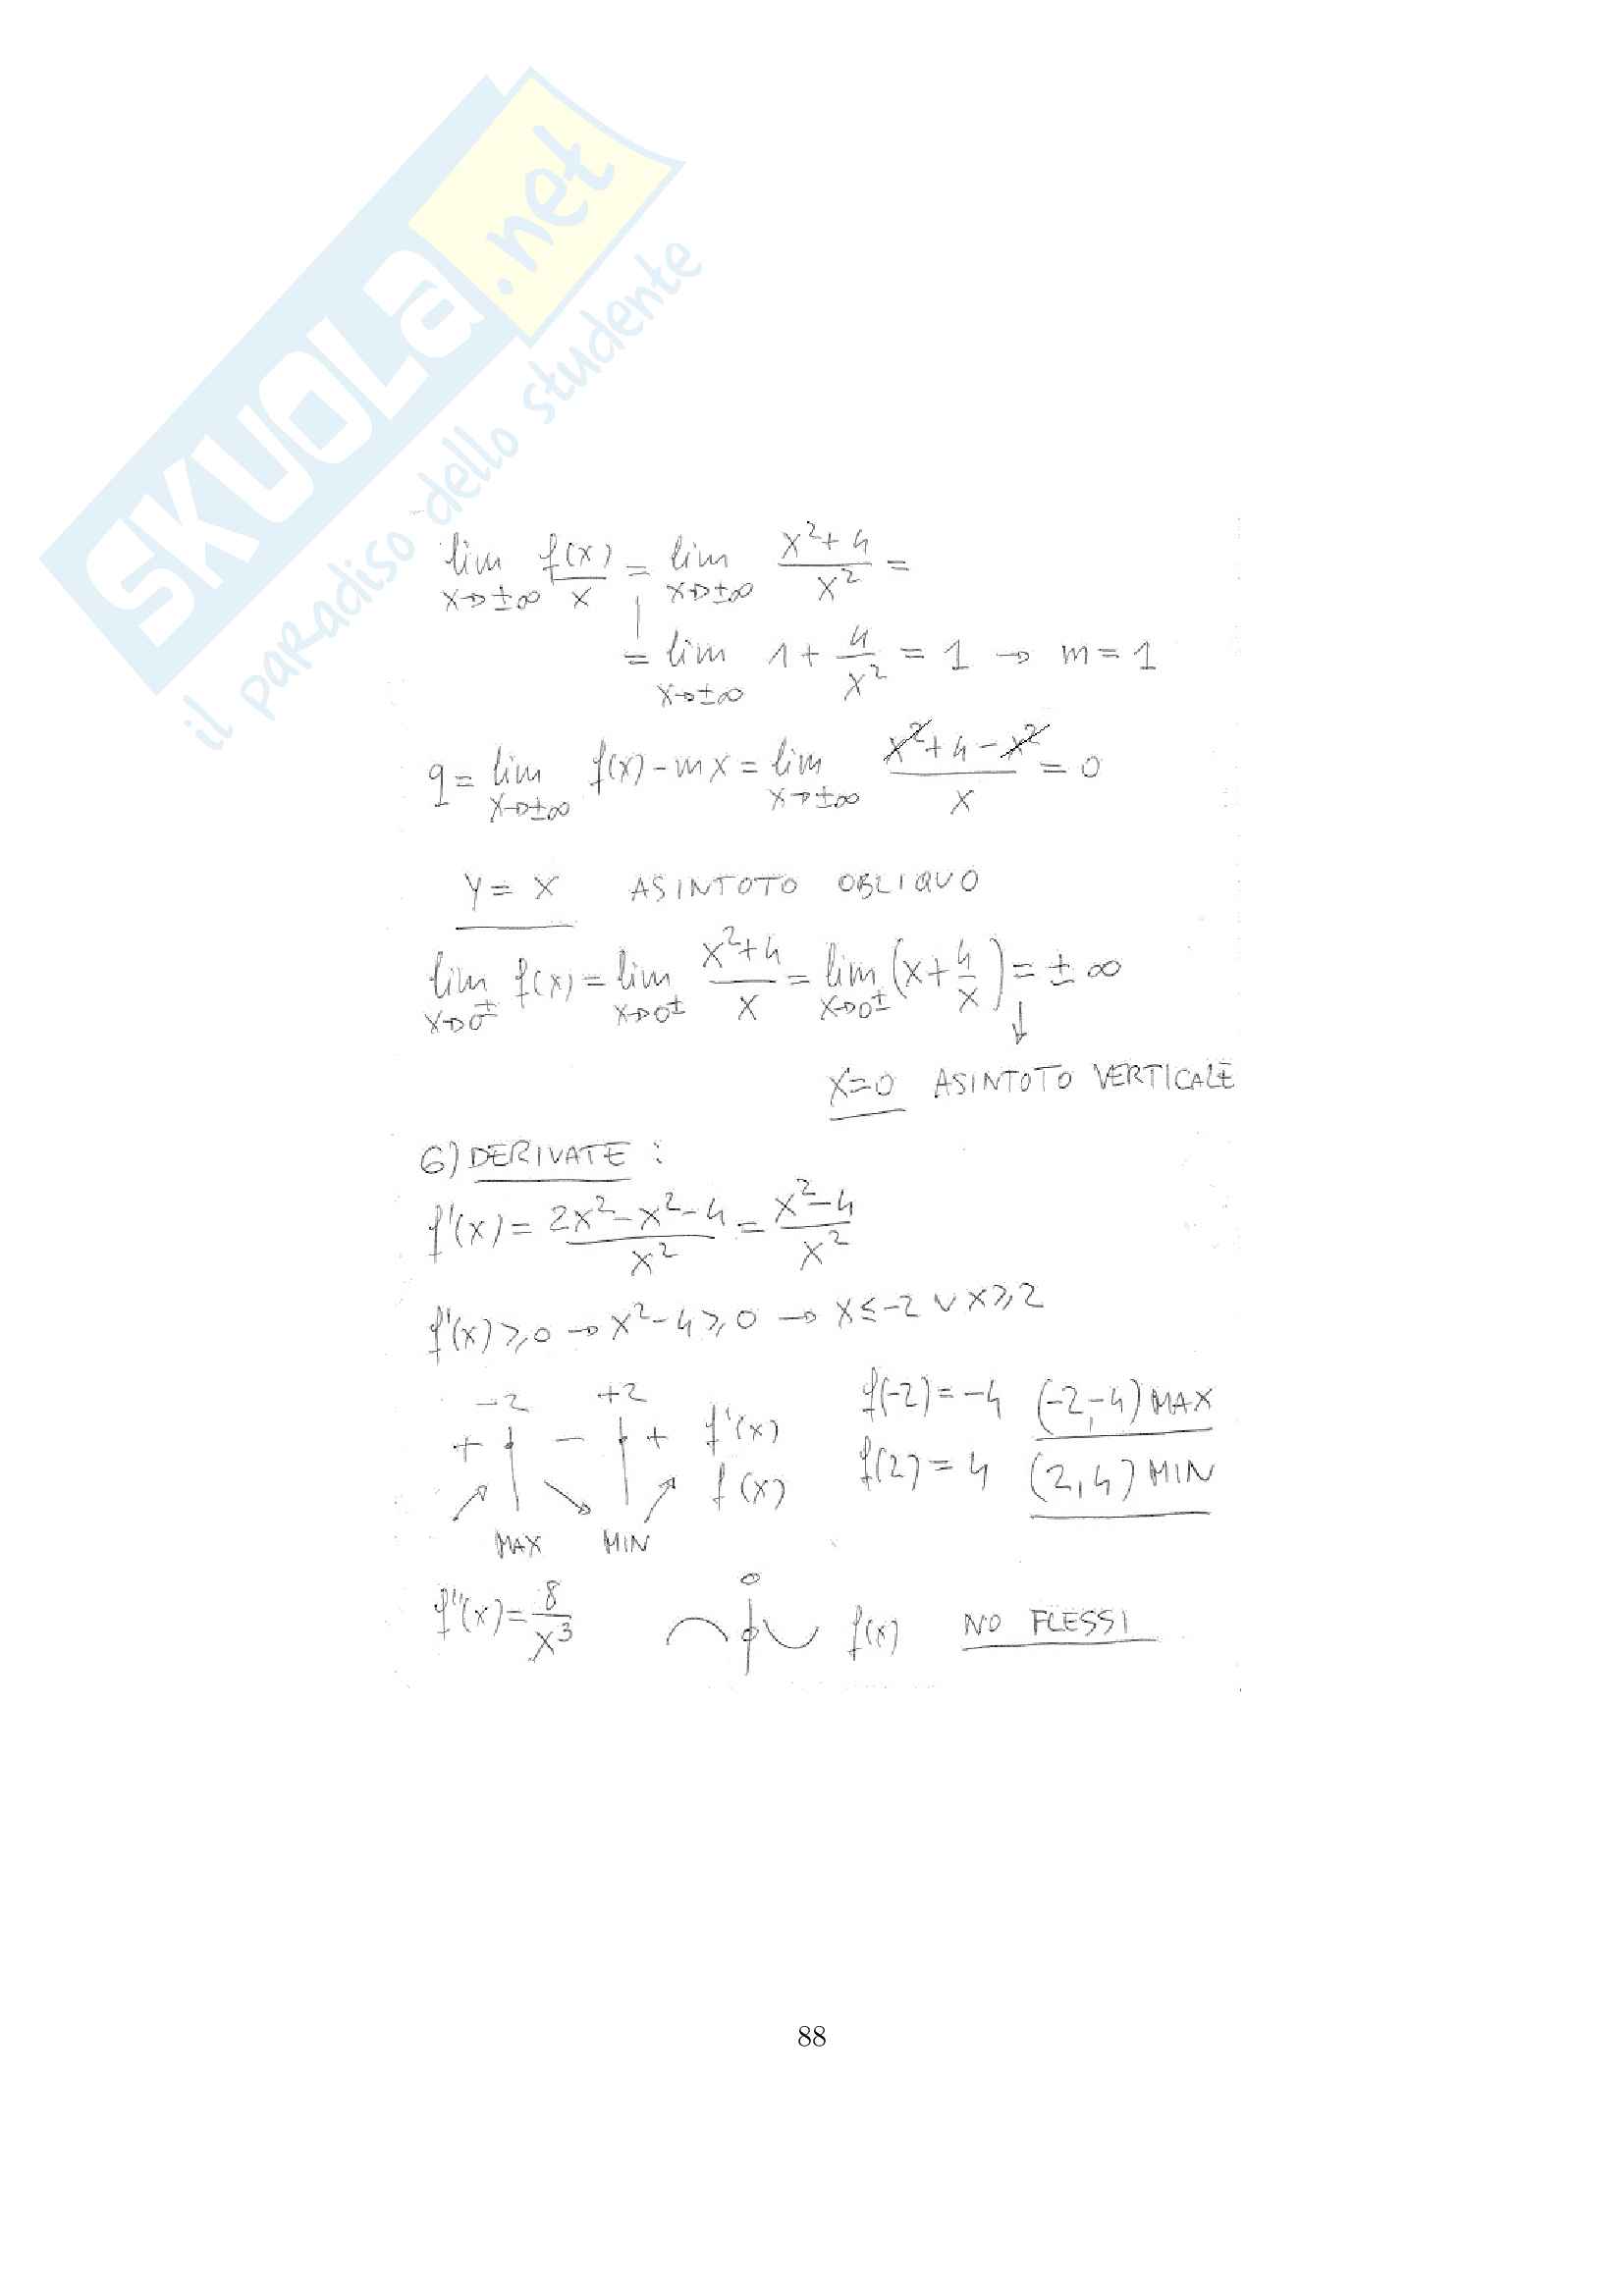 SKUOLA.net
il paradiso dello studente
lim x→±∞ f(x)/x = lim x→±∞ (x²+4)/x² =
= lim x→±∞ 1 + 4/x² = 1 → m = 1
q = lim x→±∞ f(x) - mx = lim x→±∞ (x²+4-x²)/x = 0
y = x ASINTOTO OBLIQUO
lim x→0± f(x) = lim x→0± (x²+4)/x = lim x→0± (x + 4/x) = ±∞
↓
x=0 ASINTOTO VERTICALE
6) DERIVATE :
f'(x) = (2x²-x²-4)/x² = (x²-4)/x²
f'(x) ≥ 0 → x²-4 ≥ 0 → x ≤ -2 ∨ x ≥ 2
-2 +2 f(-2) = -4 (-2,-4) MAX
+ - + f'(x)
f(x) f(2) = 4 (2,4) MIN
MAX MIN
0
f''(x) = 8/x³ f(x) NO FLESSI
88